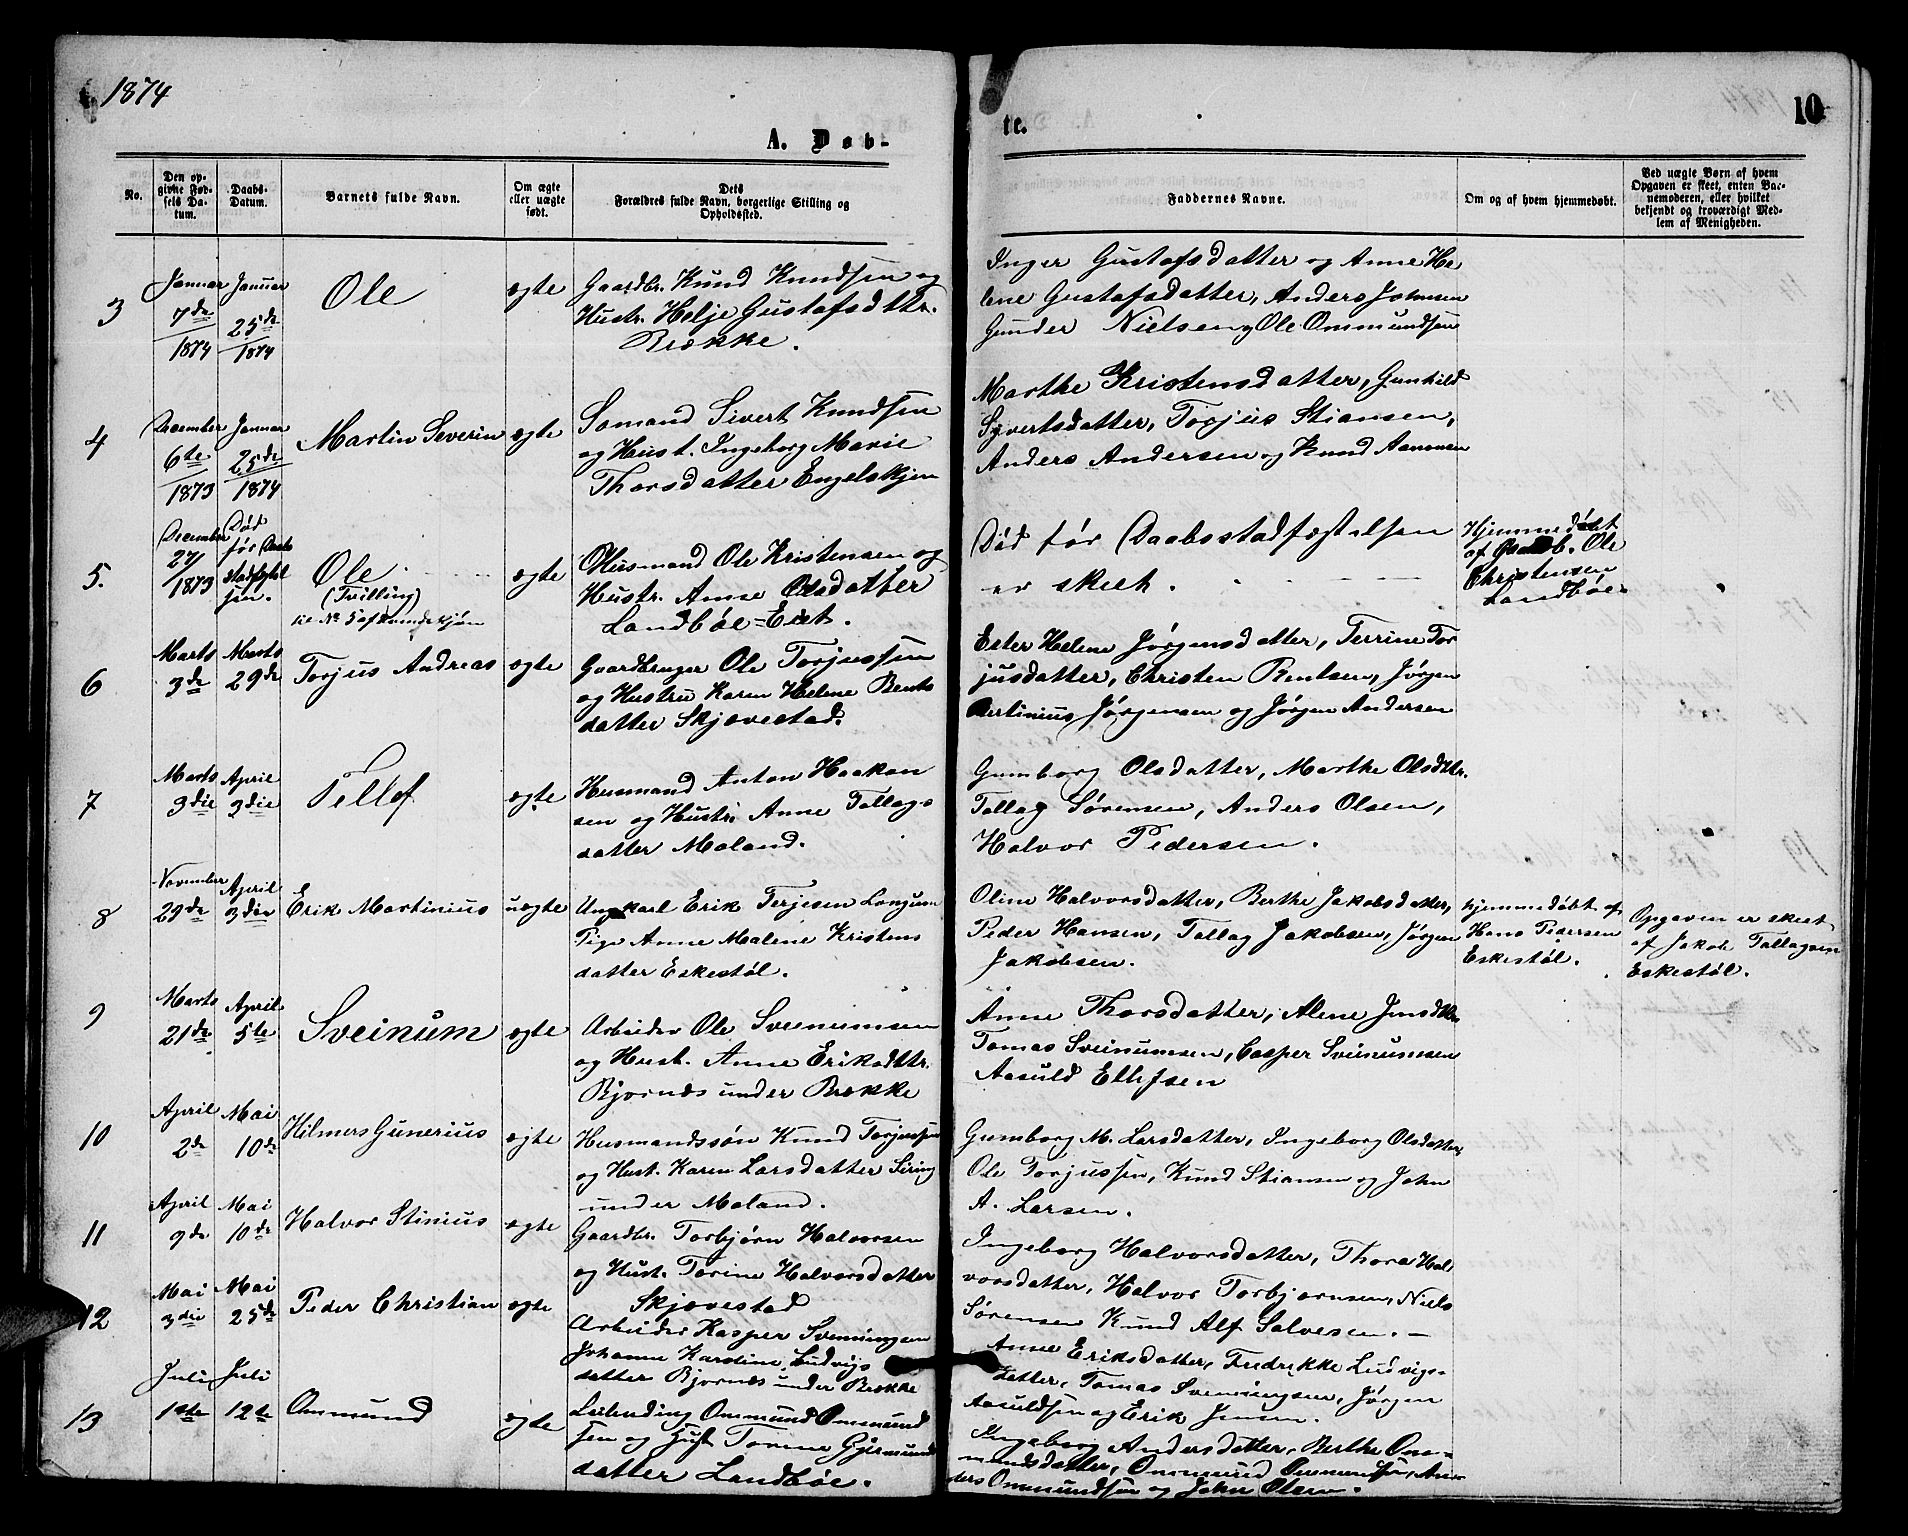 1874
10
A. Døb-
te.
No.
Den op-
givne Fød-
sels Da-
tum.
Daabs-
Datum.
Barnets fulde Navn.
Om ægte
eller uægte
født.
Dets
Forældres fulde Navn, borgerlige Stilling og
Opholdssted.
Faddernes Navne.
Om og af hvem hjemmedøbt.
Ved uægte Børn af hvem
Opgaven er skeet, enten Bar-
nemoderen, eller hvilket
bekjendt og troværdigt Med-
lem af Menigheden.
3
Januar
7de
1874
Januar
25de
1874
Ole
ægte
Gaardbr. Knud Knudsen og
Hustr. Helje Gustafsdttr.
Brække.
Inger Gustafsdatter og Anne He
lene Gustafsdatter, Anders Johnsen
Gunder Nielsen og Ole Ommundsen
4
December
6te
1873
Januar
25de
1874
Martin Severin
ægte
Sømand Sivert Knudsen
og Hust. Ingeborg Marie
Thorsdatter Engelskjøn
Marthe Kristensdatter, Gunhild
Syvertsdatter, Torjus Stiansen,
Anders Andersen og Knud Aanonsen
5.
December
27
1873
Død
før Daabs
stadfæstel
sen.
Ole
(Tvilling)
ægte
Husmand Ole Kristensen og
Hustr. Anne Olsdatter
Landbøe=Eiet.
Død før Daabsstadfæstelsen
er skeet.
Hjemmedøbt
af Gaardb. Ole
Christensen
Landbøe.
6
Marts
3de
Marts
29de
Torjus Andreas
ægte
Gaardbruger Ole Torjussen
og Hustru Karen Helene Bents
datter Skjævestad.
Ester Helene Jørgensdatter, Terrine Tor
jusdatter, Christen Bentsen, Jørgen
Bertinius Jørgensen og Jørgen Andersen
7
Marts
3die
April
3die
Tellef
ægte
Husmand Anton Haakon
sen og Hustr. Anne Tallags
datter Moland.
Gumborg Olsdatter, Marthe Olsdttr.
Tallag Sørensen, Anders Olsen,
Halvor Pedersen.
8
November
29de
April
3die
Erik Martinius
uægte
Ungkarl Erik Terjesen Longum
Pige Anne Malene Kristens
datter Eskestøl.
Oline Halvorsdatter, Berthe Jakobsdatter,
Peder Hansen, Tallag Jakobsen, Jørgen
Jakobsen.
hjemmedøbt af
Hans Pedersen
Eskestøl.
Opgaven er skeet
af Jakob Tallagsen
Eskestøl.
9
Marts
21de
April
5te
Sveinum
ægte
Arbeider Ole Sveinumsen
og Hust. Anne Eriksdttr.
Bjornæs under Brække
Anne Thorsdatter, Alene Jensdttr
Tomas Sveinumsen, Casper Sveinumsen
Aasuld Ellefsen
10
April
2de
Mai
10de
Hilmers Gunerius
ægte
Husmandssøn Knud Torjussen
og Hust. Karen Larsdatter Liring
under Moland.
Gumborg M. Larsdatter, Ingeborg Olsdatter,
Ole Torjussen, Knud Stiansen og John
A. Larsen.
11
April
9de
Mai
10de
Halvor Stinius
ægte
Gaardbr. Torbjørn Halvorsen
og Hust. Torine Halvorsdatter
Skjævestad
Ingeborg Halvorsdatter, Thora Hal
vorsdatter, Halvor Torbjornsen, Niels
Sørensen Knud Alf Salvesen. —
12
Mai
3die
Mai
25de
Peder Christian
ægte
Arbeider Kasper Sveningsen
Johanne Karoline Ludvigs
datter Bjornæs under Brække
Anne Eriksdatter, Fredrekke Ludvigs-
datter, Tomas Sveningsen, Jørgen
Aasuldsen og Erik Jensen.
13
Juli
1ste
Juli
12te
Ommund
ægte
Leilending Ommund Ommund
sen og Hust Torine Gjermunds
datter Landbøe.
Ingeborg Andersdatter, Berthe Om-
mundsdatter, Ommund Ommundsen, An-
ders Ommundsen og John Olsen.